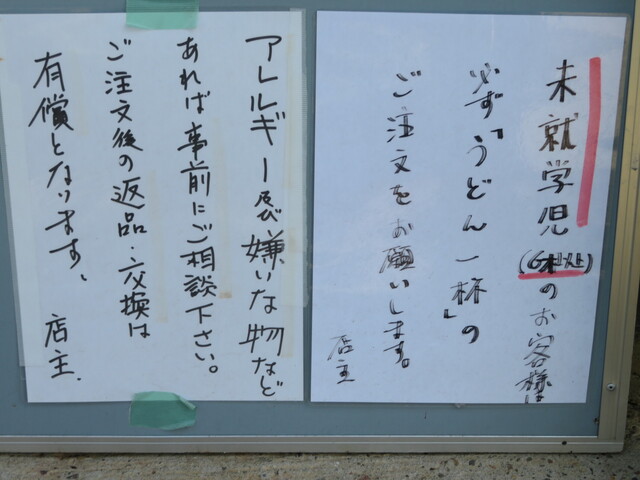 未就学児(6才以上)のお客様は
必ず「うどん一杯」の
ご注文をお願いします。
店主
アレルギー及び嫌いな物など
あれば事前にご相談下さい。
ご注文後の返品・交換は
有償となります、
店主.